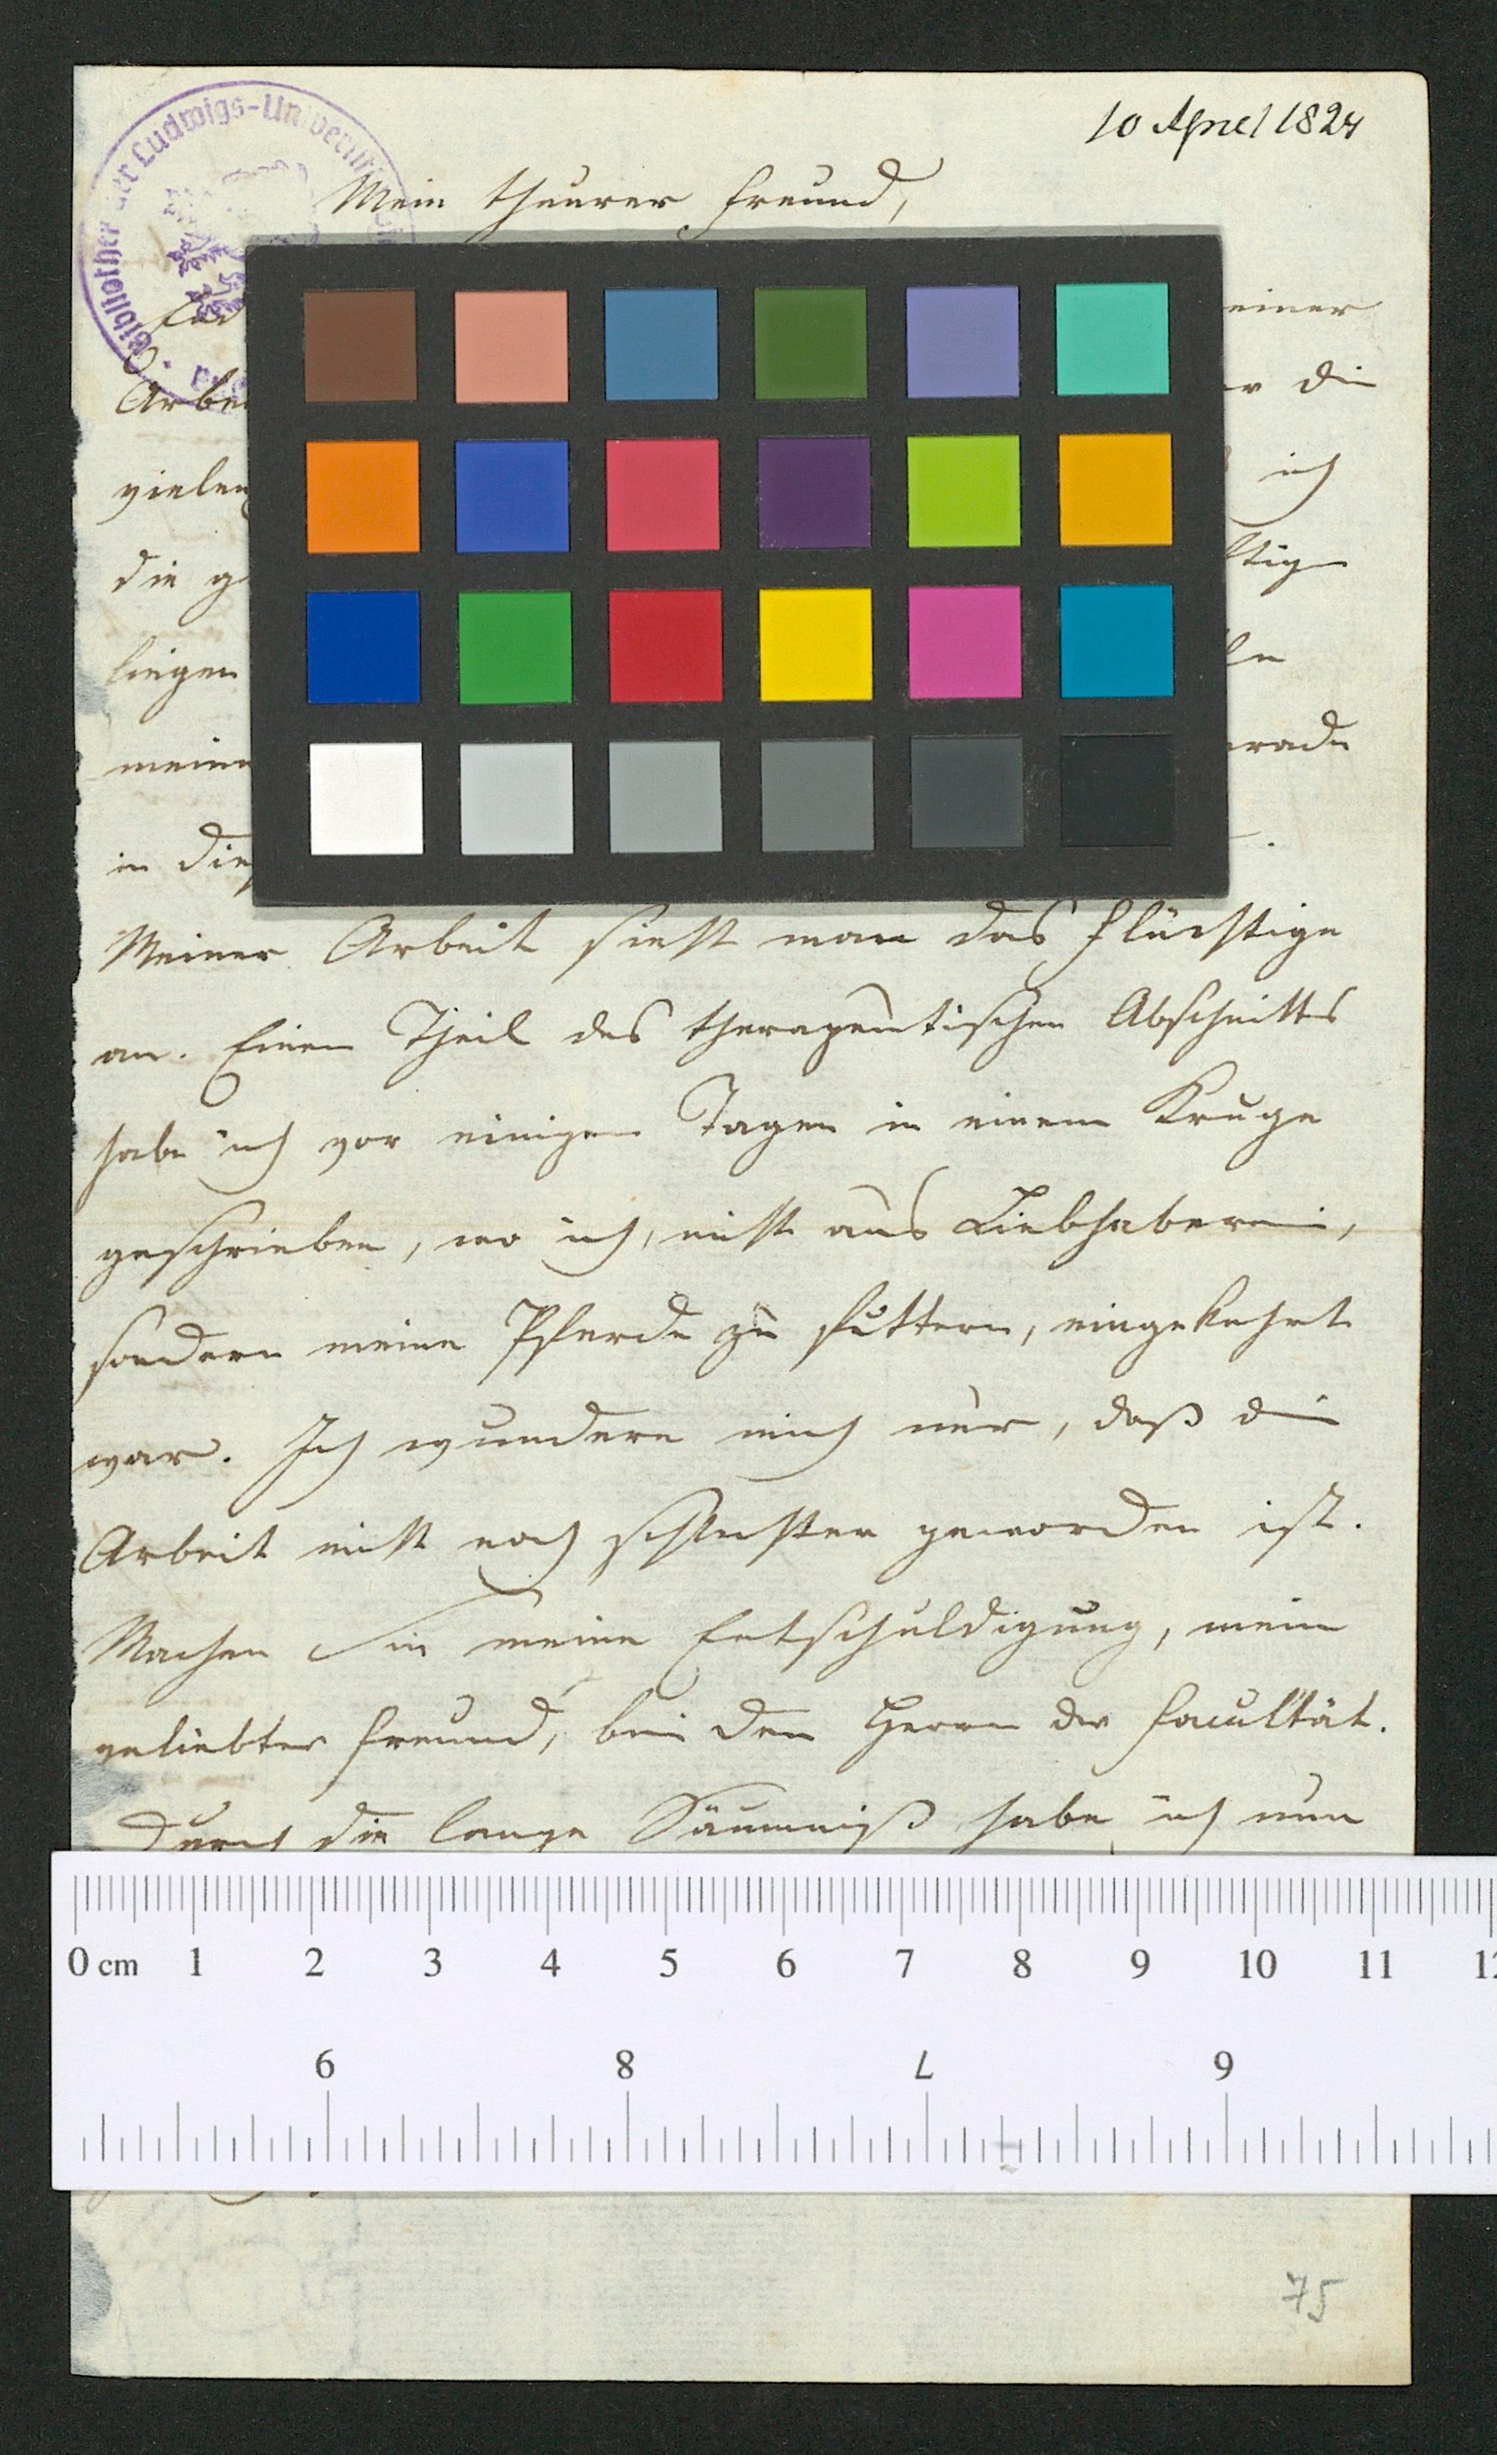 10 April 1824
Bibliothek der Ludwigs-Universität
Mein theurer Freund,
einer
Arbei
r die
vielen
ich
die g
ftige
liegen
meine
erade
in dies
Meiner Arbeit sieht man das Flüchtige
an. Einen Theil des therapeutischen Abschnitts
habe ich vor einigen Tagen in einem Kruge
geschrieben, wo ich, nicht aus Liebhaberei,
sondern meine Pferde zu futtern, eingekehrt
war. Ich wundere mich nur, daß die
Arbeit nicht noch schlechter geworden ist.
Machen Sie meine Entschuldigung, mein
geliebter Freund, bei den Herrn der Facultät.
Durch die lange Säumniß habe ich nun
0 cm 1 2 3 4 5 6 7 8 9 10 11 12
9 8 7 6
75